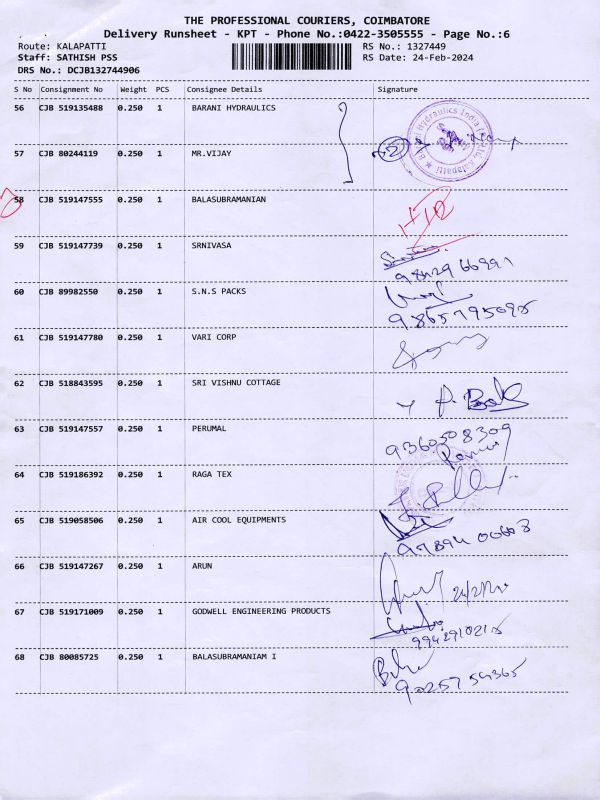 THE PROFESSIONAL COURIERS, COIMBATORE
Delivery Runsheet - KPT - Phone No.:0422-3505555 - Page No.:6
Route: KALAPATTI RS No.: 1327449
Staff: SATHISH PSS RS Date: 24-Feb-2024
DRS No.: DCJB132744906
S No Consignment No Weight PCS Consignee Details Signature
56 CJB 519135488 0.250 1 BARANI HYDRAULICS
57 CJB 80244119 0.250 1 MR.VIJAY
58 CJB 519147555 0.250 1 BALASUBRAMANIAN
59 CJB 519147739 0.250 1 SRNIVASA
60 CJB 89982550 0.250 1 S.N.S PACKS
9865795095
61 CJB 519147780 0.250 1 VARI CORP
62 CJB 518843595 0.250 1 SRI VISHNU COTTAGE
63 CJB 519147557 0.250 1 PERUMAL
9360508309
64 CJB 519186392 0.250 1 RAGA TEX
65 CJB 519058506 0.250 1 AIR COOL EQUIPMENTS
97894 00603
66 CJB 519147267 0.250 1 ARUN
67 CJB 519171009 0.250 1 GODWELL ENGINEERING PRODUCTS
68 CJB 80085725 0.250 1 BALASUBRAMANIAM I
90257 54365